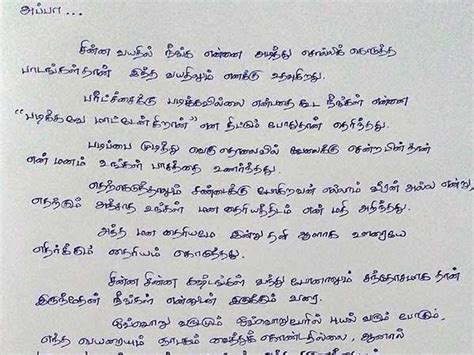 அப்பா...
சின்ன வயதில் நீங்க என்னை அடித்து சொல்லிக் கொடுத்த
பாடங்கள்தான் இந்த வயதிலும் எனக்கு உதவுகிறது.
பரீட்சைக்கு படிக்கவில்லை என்பதை கூட நீங்கள் என்னை
"படிக்கவே மாட்டேன்கிறான்" என திட்டும் போதுதான் தெரிந்தது.
படிப்பை முடித்து வெகு தொலைவில் வேலைக்கு சென்ற பின் தான்
என் மனம் உங்கள் பாசத்தை உணர்ந்தது.
எதற்கெடுத்தாலும் சண்டைக்கு போகிறவன் எல்லாம் வீரன் அல்ல என்று
எதற்கும் அஞ்சாத உங்கள் மன தைரியத்திடம் என் மதி அறிந்தது.
அந்த மன தைரியமே இன்று தனி ஆளாக ஊரையே
எதிர்க்கும் தைரியம் கொடுத்தது.
சின்ன சின்ன கஷ்டங்கள் வந்து போனாலும் சந்தோசமாக தான்
இருந்தேன் நீங்கள் என்னுடன் இருக்கும் வரை.
ஒவ்வொரு வருடமும் ஒவ்வொருபெயரில் புயல் வரும் போகும்,
எந்த பெயரையும் ஞாபகம் வைத்துக் கொண்டதில்லை, ஆனால்